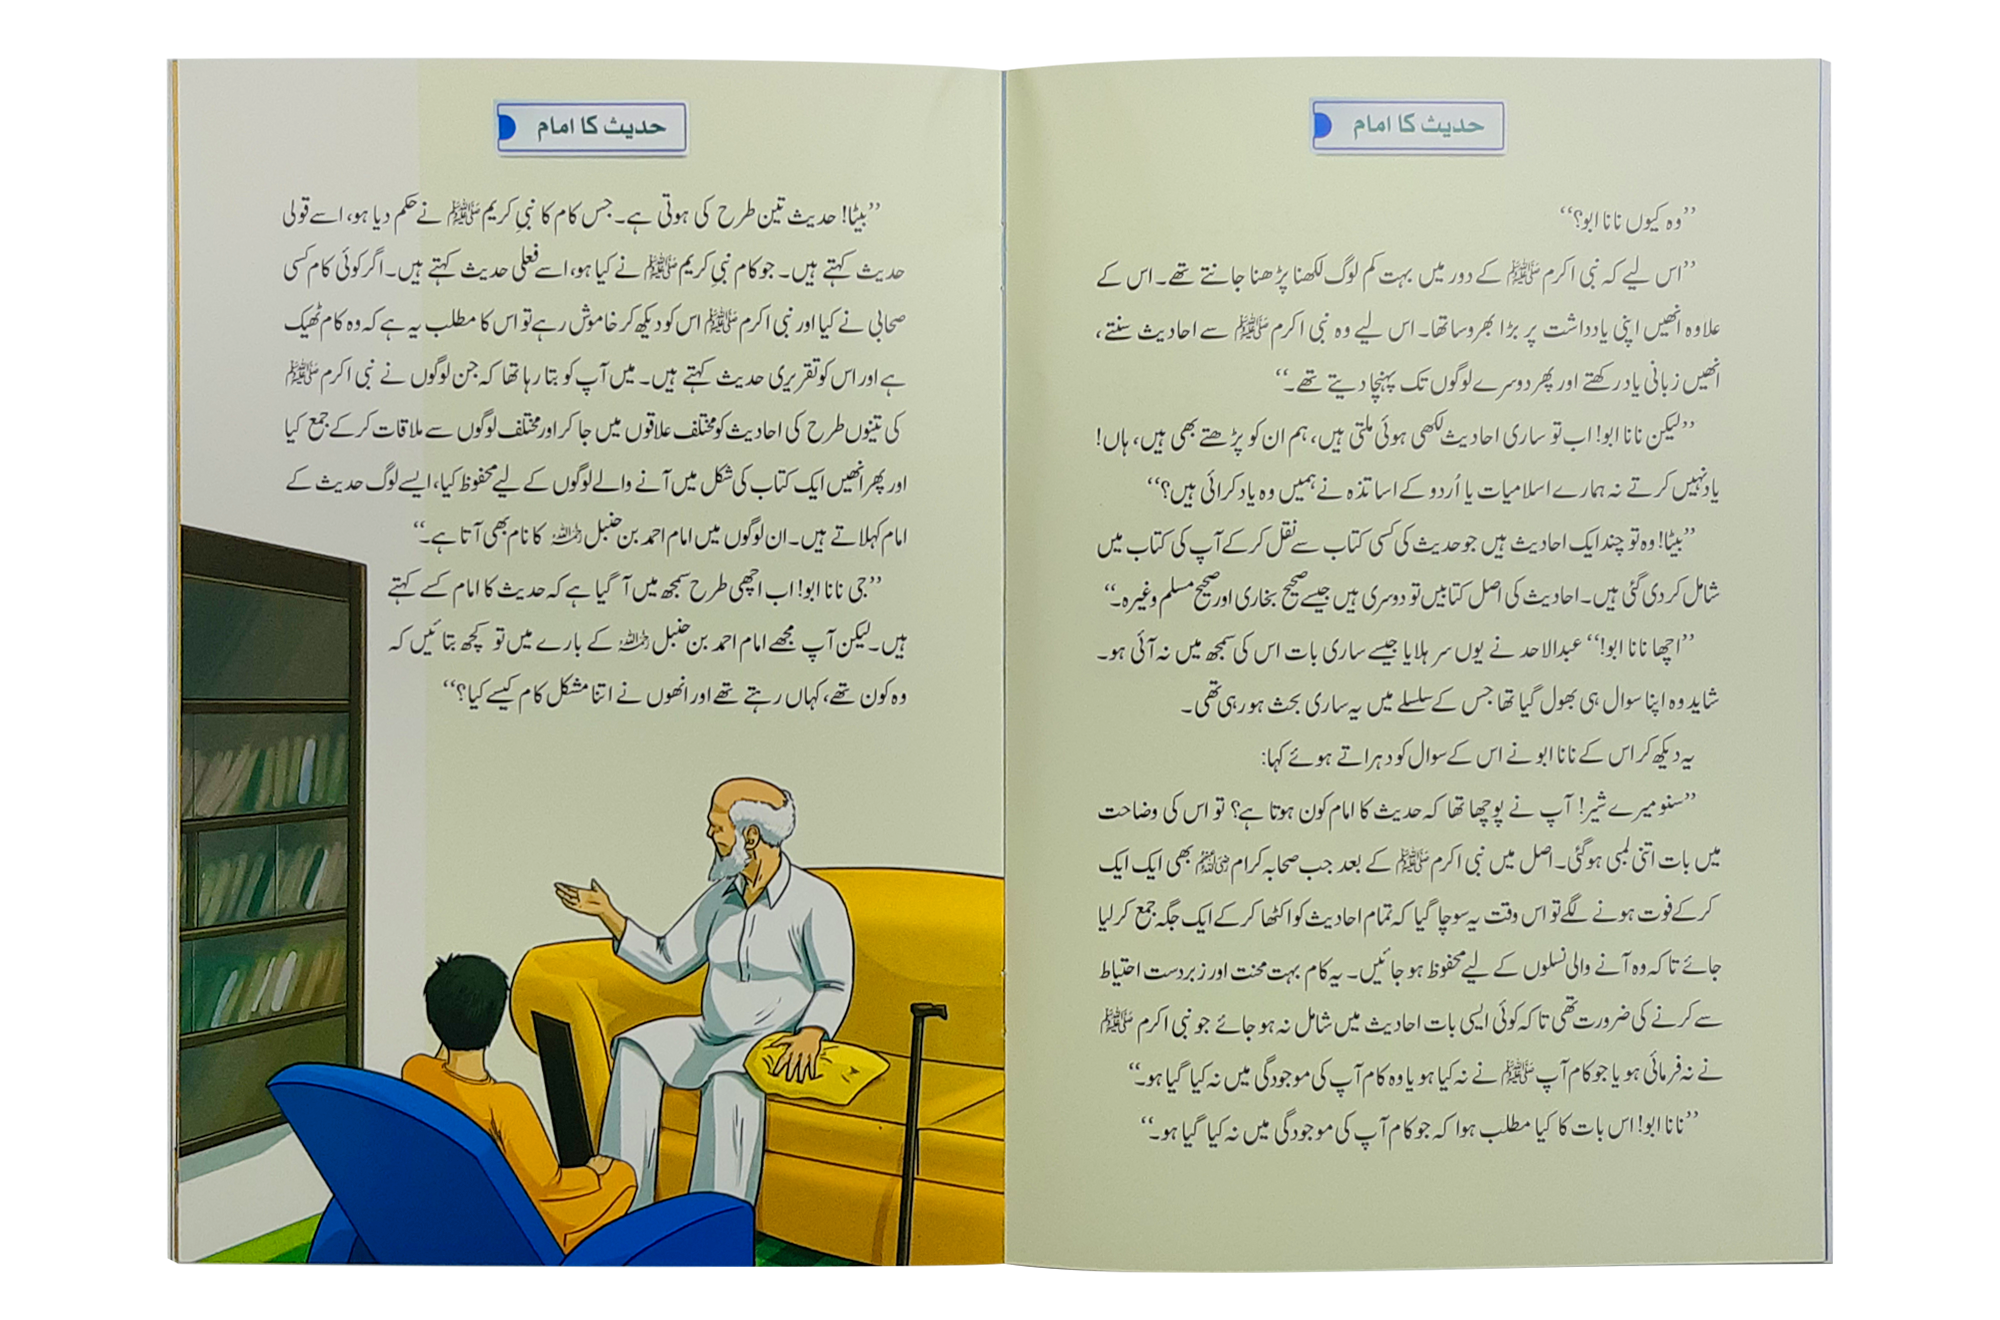 حدیث کا امام
’’وہ کیوں نانا ابو؟‘‘
’’اس لیے کہ نبی اکرم ﷺ کے دور میں بہت کم لوگ لکھنا پڑھنا جانتے تھے۔ اس کے
علاوہ انھیں اپنی یادداشت پر بڑا بھروسا تھا۔ اس لیے وہ نبی اکرم ﷺ سے احادیث سنتے،
انھیں زبانی یاد رکھتے اور پھر دوسرے لوگوں تک پہنچا دیتے تھے۔‘‘
’’لیکن نانا ابو! اب تو ساری احادیث لکھی ہوئی ملتی ہیں، ہم ان کو پڑھتے بھی ہیں، ہاں!
یاد نہیں کرتے نہ ہمارے اسلامیات یا اُردو کے اساتذہ نے ہمیں وہ یاد کرائی ہیں؟‘‘
’’بیٹا! وہ تو چند ایک احادیث ہیں جو حدیث کی کسی کتاب سے نقل کر کے آپ کی کتاب میں
شامل کر دی گئی ہیں۔ احادیث کی اصل کتابیں تو دوسری ہیں جیسے صحیح بخاری اور صحیح مسلم وغیرہ۔‘‘
’’اچھا نانا ابو!‘‘ عبدالاحد نے یوں سر ہلایا جیسے ساری بات اس کی سمجھ میں نہ آئی ہو۔
شاید وہ اپنا سوال ہی بھول گیا تھا جس کے سلسلے میں یہ ساری بحث ہو رہی تھی۔
یہ دیکھ کر اس کے نانا ابو نے اس کے سوال کو دہراتے ہوئے کہا:
’’سنو میرے شیر! آپ نے پوچھا تھا کہ حدیث کا امام کون ہوتا ہے؟ تو اس کی وضاحت
میں بات اتنی لمبی ہو گئی۔ اصل میں نبی اکرم ﷺ کے بعد جب صحابہ کرام رضی اللہ عنہم بھی ایک ایک
کر کے فوت ہونے لگے تو اس وقت یہ سوچا گیا کہ تمام احادیث کو اکٹھا کر کے ایک جگہ جمع کر لیا
جائے تاکہ وہ آنے والی نسلوں کے لیے محفوظ ہو جائیں۔ یہ کام بہت محنت اور زبردست احتیاط
سے کرنے کی ضرورت تھی تاکہ کوئی ایسی بات احادیث میں شامل نہ ہو جائے جو نبی اکرم ﷺ
نے نہ فرمائی ہو یا جو کام آپ ﷺ نے نہ کیا ہو یا وہ کام آپ کی موجودگی میں نہ کیا گیا ہو۔‘‘
’’نانا ابو! اس بات کا کیا مطلب ہوا کہ جو کام آپ کی موجودگی میں نہ کیا گیا ہو۔‘‘
حدیث کا امام
’’بیٹا! حدیث تین طرح کی ہوتی ہے۔ جس کام کا نبیِ کریم ﷺ نے حکم دیا ہو، اسے قولی
حدیث کہتے ہیں۔ جو کام نبیِ کریم ﷺ نے کیا ہو، اسے فعلی حدیث کہتے ہیں۔ اگر کوئی کام کسی
صحابی نے کیا اور نبی اکرم ﷺ اس کو دیکھ کر خاموش رہے تو اس کا مطلب یہ ہے کہ وہ کام ٹھیک
ہے اور اس کو تقریری حدیث کہتے ہیں۔ میں آپ کو بتا رہا تھا کہ جن لوگوں نے نبی اکرم ﷺ
کی تینوں طرح کی احادیث کو مختلف علاقوں میں جا کر اور مختلف لوگوں سے ملاقات کر کے جمع کیا
اور پھر انھیں ایک کتاب کی شکل میں آنے والے لوگوں کے لیے محفوظ کیا، ایسے لوگ حدیث کے
امام کہلاتے ہیں۔ ان لوگوں میں امام احمد بن حنبل رحمہ اللہ کا نام بھی آتا ہے۔‘‘
’’جی نانا ابو! اب اچھی طرح سمجھ میں آ گیا ہے کہ حدیث کا امام کسے کہتے
ہیں۔ لیکن آپ مجھے امام احمد بن حنبل رحمہ اللہ کے بارے میں تو کچھ بتائیں کہ
وہ کون تھے، کہاں رہتے تھے اور انھوں نے اتنا مشکل کام کیسے کیا؟‘‘